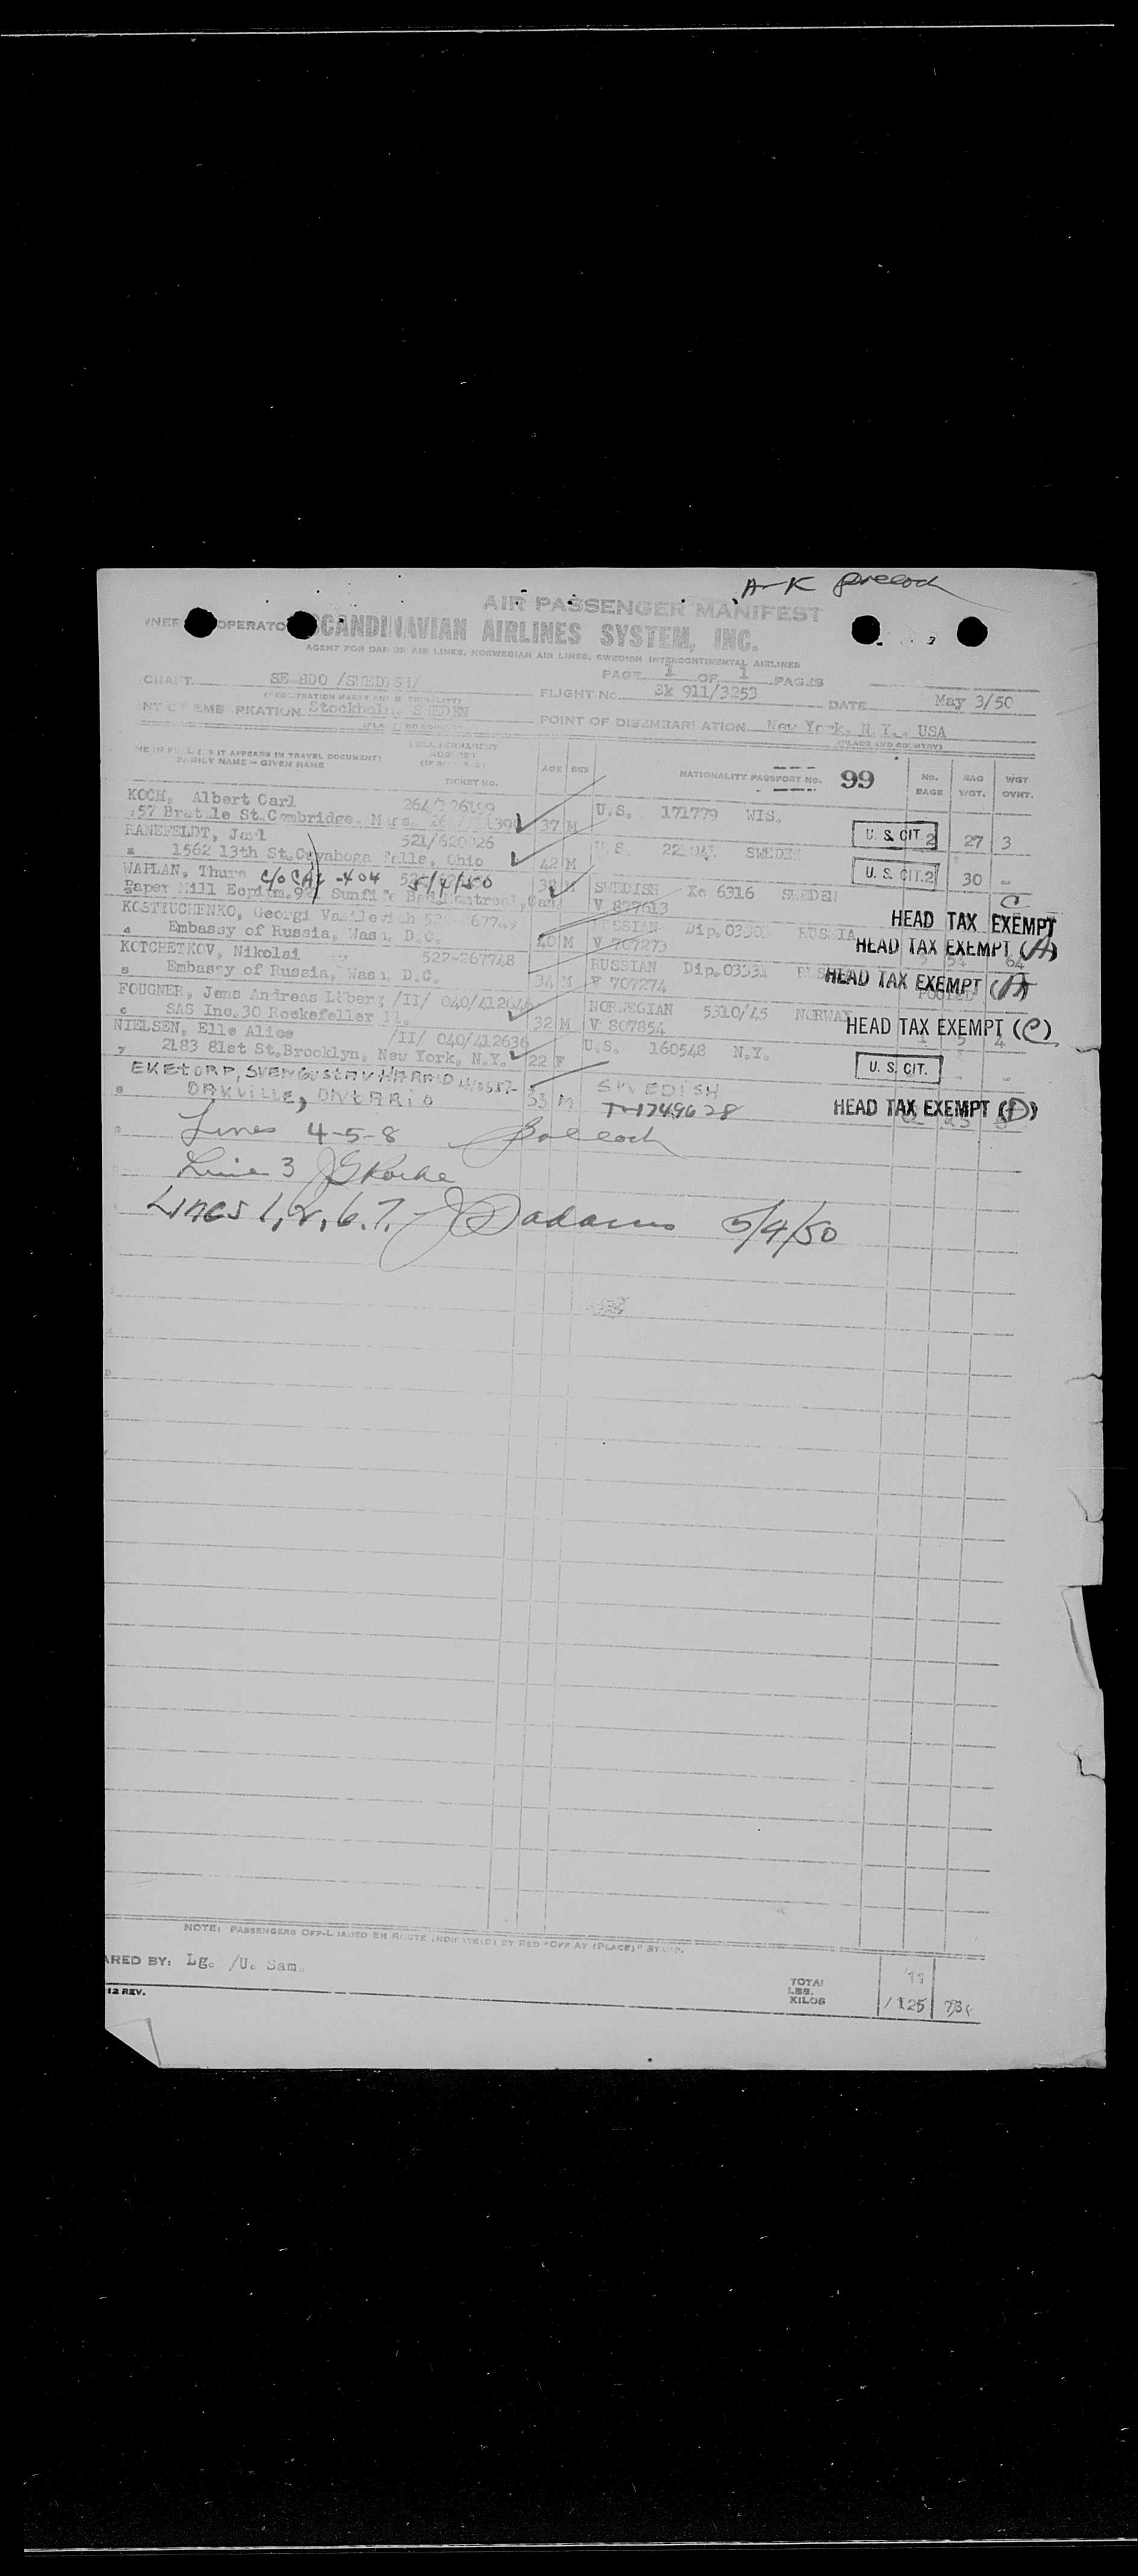 A-K
AIR PASSENGER MANIFEST
OPERATO SCANDINAVIAN AIRLINES SYSTEM, INC.
AGENT FOR DANISH AIR LINES, NORWEGIAN AIR LINES, SWEDISH INTERCONTINENTAL AIRLINES
PAGE 1 OF 1 PAGES
SE-BDO /SWEDISH/
FLIGHT No. Sk 911/3253 DATE May 3/50
Stockholm, SWEDEN
POINT OF DISEMBARKATION New York, N.Y., USA
(PLACE AND COUNTRY)
ME IN FULL (AS IT APPEARS IN TRAVEL DOCUMENT)
FAMILY NAME - GIVEN NAME
TICKET NO. AGE SEX NATIONALITY PASSPORT No. 99 No. BAGS BAG WGT. WGT OVHT.
KOCH, Albert Carl
57 Brattle St. Cambridge, Mass. 37 M U.S. 171779 WIS. U. S. CIT. 2 27 3
RANEFELDT, Juel 521/620026
2 1562 13th St. Cuyahoga Falls, Ohio 42 M U.S. SWEDEN U. S. CIT. 2 30 -
WAPLAN, Thure 5/4/50
SWEDISH Ko 6316 SWEDEN
V 877613 HEAD TAX EXEMPT C
KOSTIUCHENKO, Georgi Vasilevich
4 Embassy of Russia, Wash. D.C. 40 M RUSSIAN RUSSIA
V 707273 HEAD TAX EXEMPT (A)
KOTCHETKOV, Nikolai 522-267748
5 Embassy of Russia, Wash. D.C. 34 M RUSSIAN Dip.03531
V 707274 HEAD TAX EXEMPT (A)
POOLED 64
FOUGNER, Jens Andreas Löberg /II/ 040/412646
6 SAS Inc. 30 Rockefeller Pl. 32 M NORWEGIAN 5310/45 NORWAY
V 807854 HEAD TAX EXEMPT (C)
NIELSEN, Elle Alice /II/ 040/412636
7 2183 81st St. Brooklyn, New York, N.Y. 22 F U.S. 160548 N.Y. U. S. CIT. - -
EKETORP, SVEN GUSTAV HARALD
8 OAKVILLE, ONTARIO 33 M SWEDISH
T-1749628 HEAD TAX EXEMPT (D)
Lines 4-5-8
Line 3 J G Roche
Lines 1, 2, 6. 7. - J adams 5/4/50
NOTE: PASSENGERS OFF-LOADED EN ROUTE INDICATED BY RED "OFF AT (PLACE)" STAMP.
ARED BY: Lg. /U. Sam.
12 REV.
TOTAL
LBS.
KILOS 125